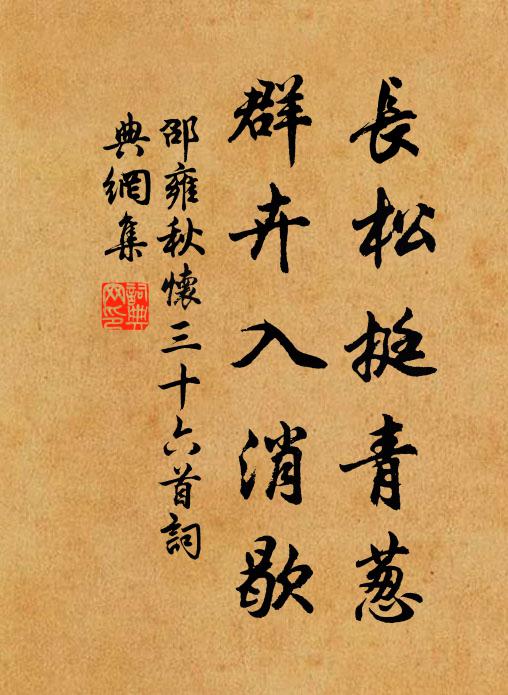 長松挺青葱
群卉入消歇
邵雍秋懷三十六首詞
典網集
詞典網印